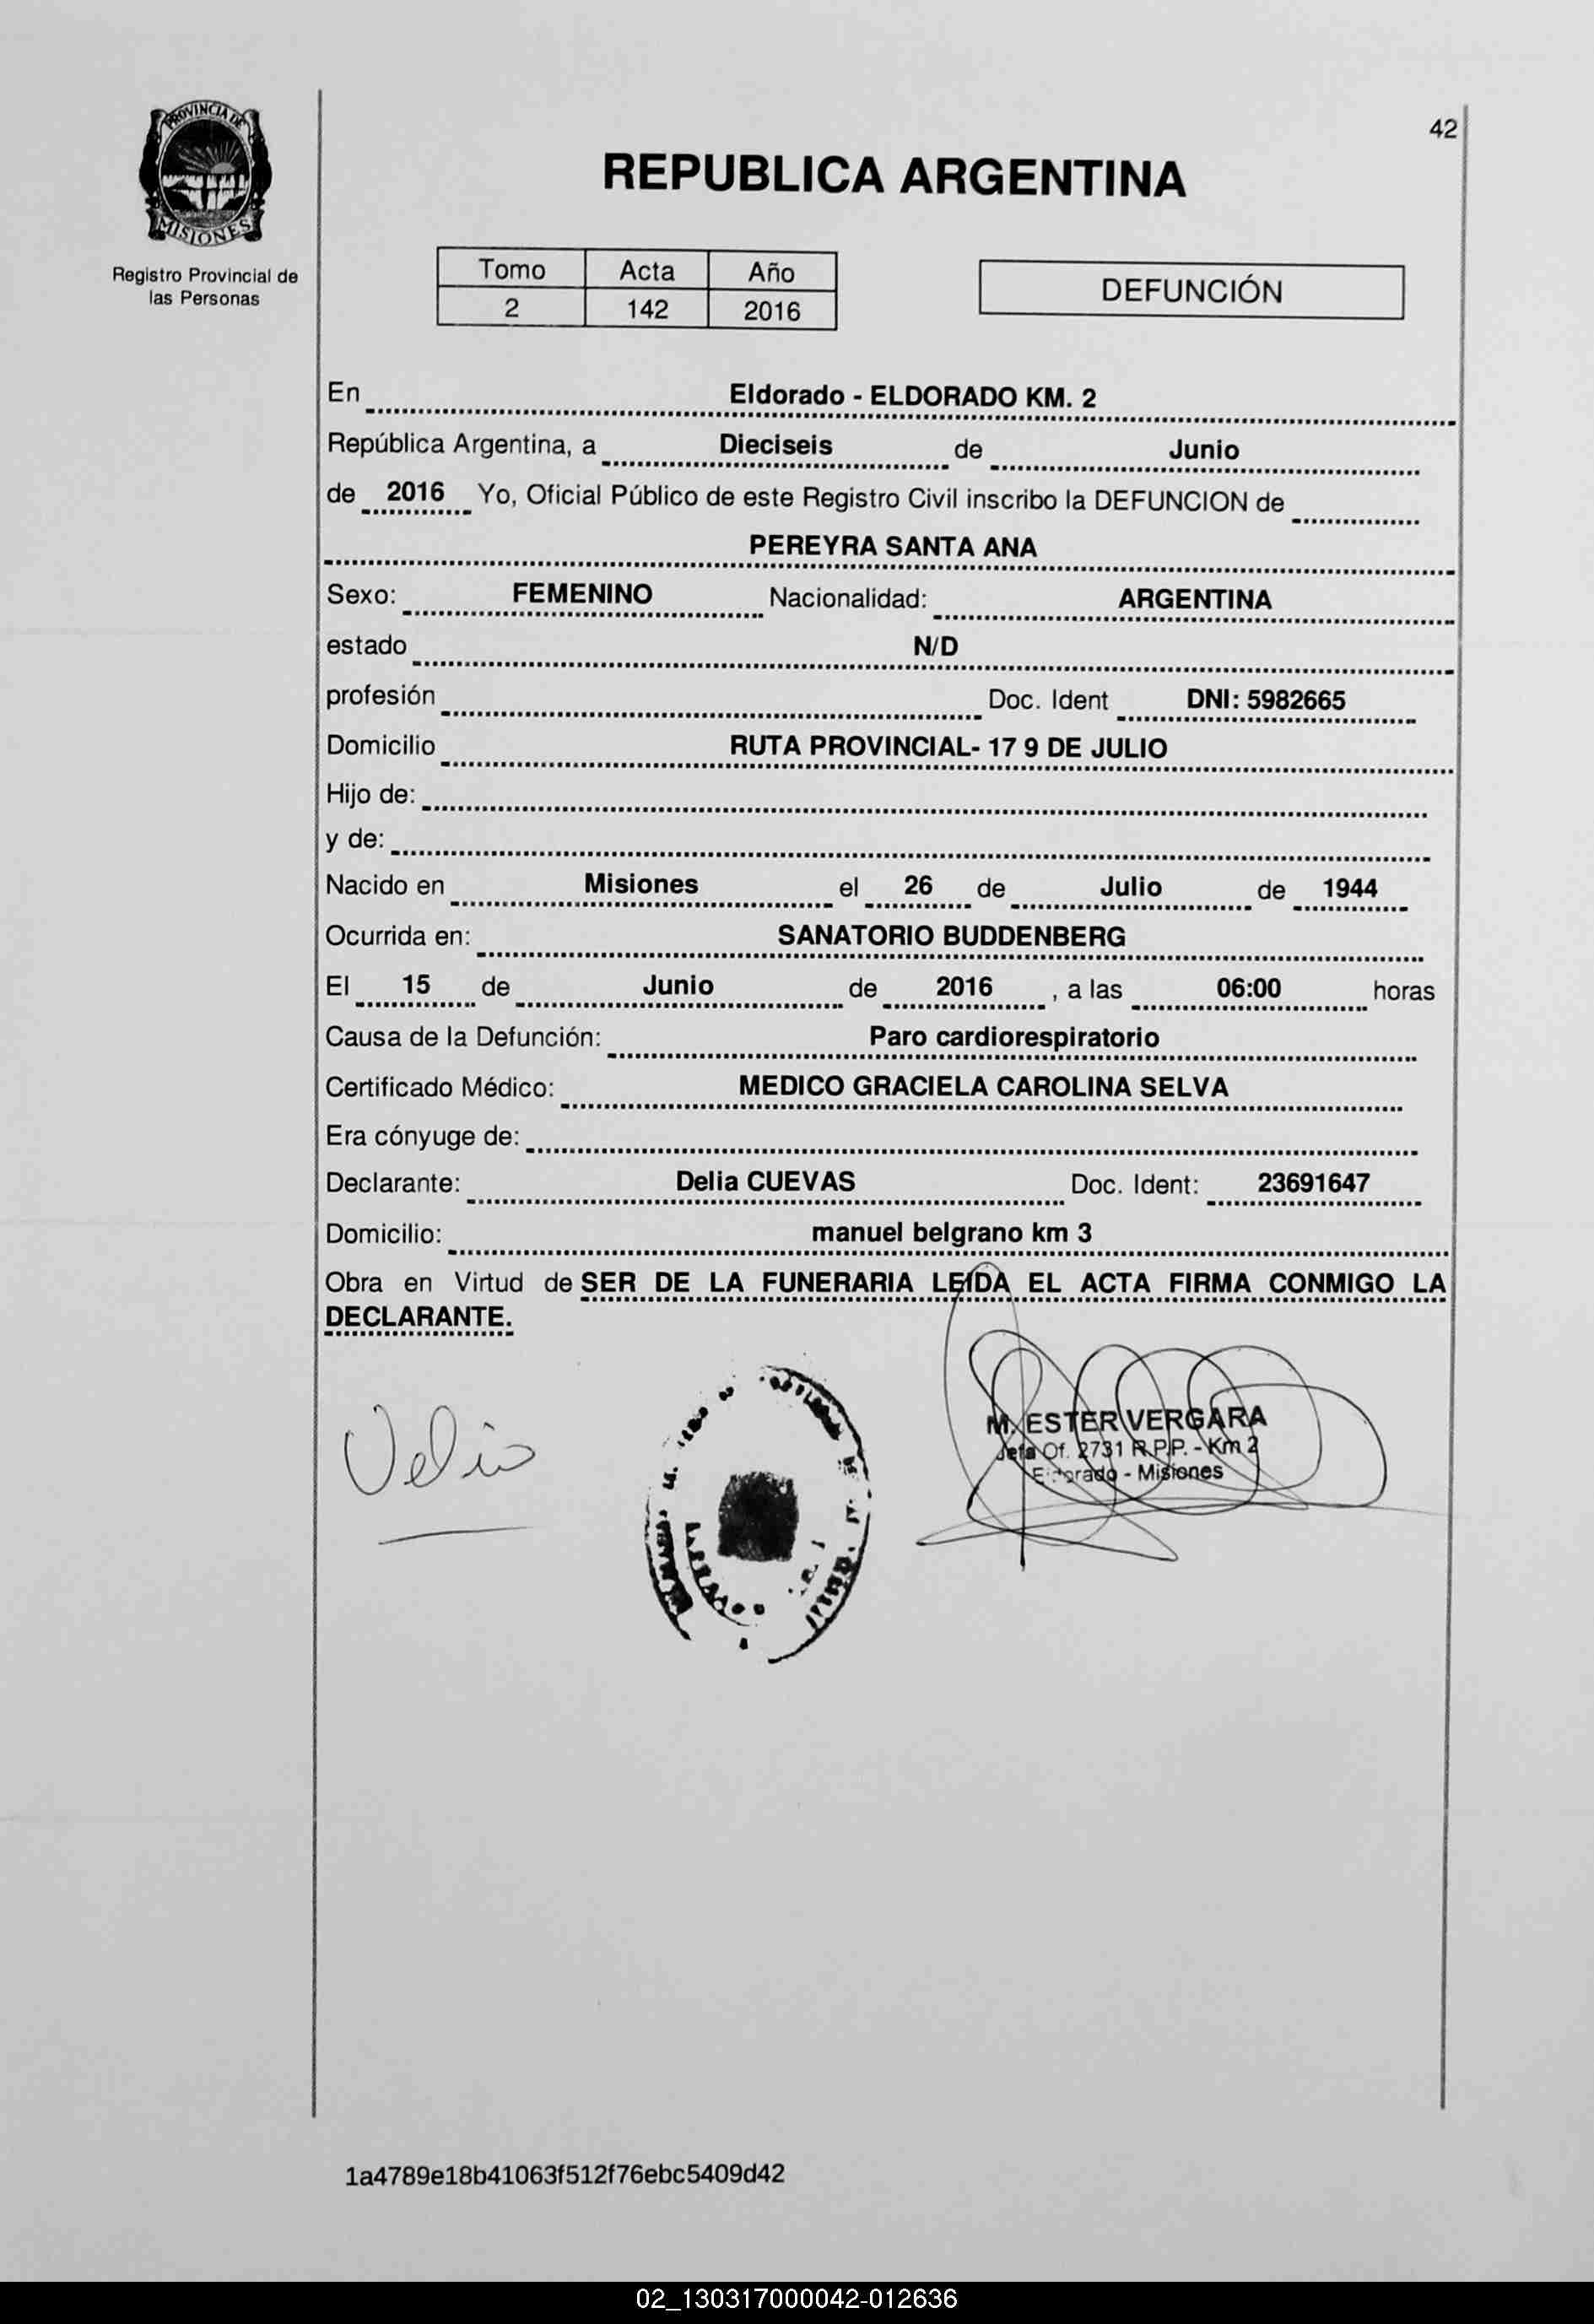 42
PROVINCIA DE
MISIONES
Registro Provincial de
las Personas
REPUBLICA ARGENTINA
Tomo Acta Año
2 142 2016
DEFUNCIÓN
En Eldorado - ELDORADO KM. 2
República Argentina, a Dieciseis de Junio
de 2016 Yo, Oficial Público de este Registro Civil inscribo la DEFUNCION de
PEREYRA SANTA ANA
Sexo: FEMENINO Nacionalidad: ARGENTINA
estado N/D
profesión Doc. Ident DNI: 5982665
Domicilio RUTA PROVINCIAL- 17 9 DE JULIO
Hijo de:
y de:
Nacido en Misiones el 26 de Julio de 1944
Ocurrida en: SANATORIO BUDDENBERG
El 15 de Junio de 2016 , a las 06:00 horas
Causa de la Defunción: Paro cardiorespiratorio
Certificado Médico: MEDICO GRACIELA CAROLINA SELVA
Era cónyuge de:
Declarante: Delia CUEVAS Doc. Ident: 23691647
Domicilio: manuel belgrano km 3
Obra en Virtud de SER DE LA FUNERARIA LEIDA EL ACTA FIRMA CONMIGO LA
DECLARANTE.
M. ESTER VERGARA
Jefa Of. 2731 R.P.P. - Km 2
Eldorado - Misiones
1a4789e18b41063f512f76ebc5409d42
02_130317000042-012636